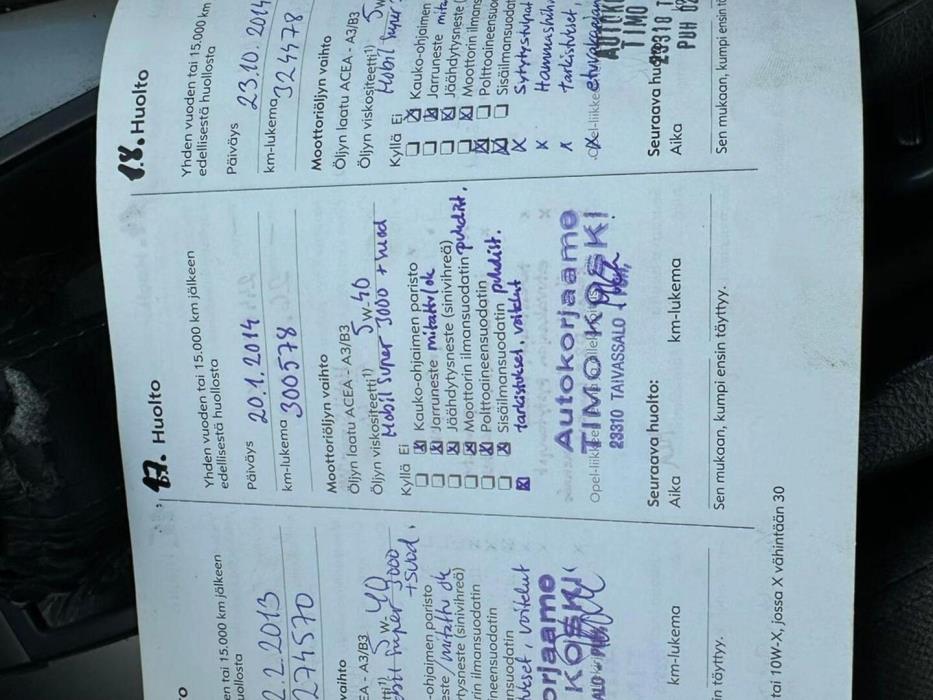 o
en tai 15.000 km jälkeen
uollosta
2.2.2013
274570
vaihto
EA - A3/B3
5W- 40
3000
+ suod.
-ohjaimen paristo
este / mitattu ok
tysneste (sinivihreä)
rin ilmansuodatin
neensuodatin
ansuodatin
kset, voitelut
orjaamo
KOSKI
ALO
km-lukema
n täyttyy.
tai 10W-X, jossa X vähintään 30
17. Huolto
Yhden vuoden tai 15.000 km jälkeen
edellisestä huollosta
Päiväys 20.1.2014
km-lukema 300578
Moottoriöljyn vaihto
Öljyn laatu ACEA - A3/B3
Öljyn viskositeetti1) 5W-40
Mobil Super 3000 + suod
Kyllä Ei
Kauko-ohjaimen paristo
Jarruneste mitattu ok
Jäähdytysneste (sinivihreä)
Moottorin ilmansuodatin puhdist.
Polttoaineensuodatin
Sisäilmansuodatin puhdist.
tarkistukset, voitelut
Autokorjaamo
TIMO KOSKI
Opel-liikkee
23310 TAIVASSALO
Seuraava huolto:
Aika km-lukema
Sen mukaan, kumpi ensin täyttyy.
18. Huolto
Yhden vuoden tai 15.000 km
edellisestä huollosta
Päiväys 23.10.2014
km-lukema 324478
Moottoriöljyn vaihto
Öljyn laatu ACEA - A3/B3
Öljyn viskositeetti1) 5w
Mobil Super
Kyllä Ei
Kauko-ohjaimen
Jarruneste mita
Jäähdytysneste (
Moottorin ilmans
Polttoaineensuo
Sisäilmansuodat
sytytystulpat
Hammashihn
tarkistukset,
Opel-liikkee
AUTOKO
TIMO
23310 T
PUH 02
Seuraava huo
Aika
Sen mukaan, kumpi ensin t